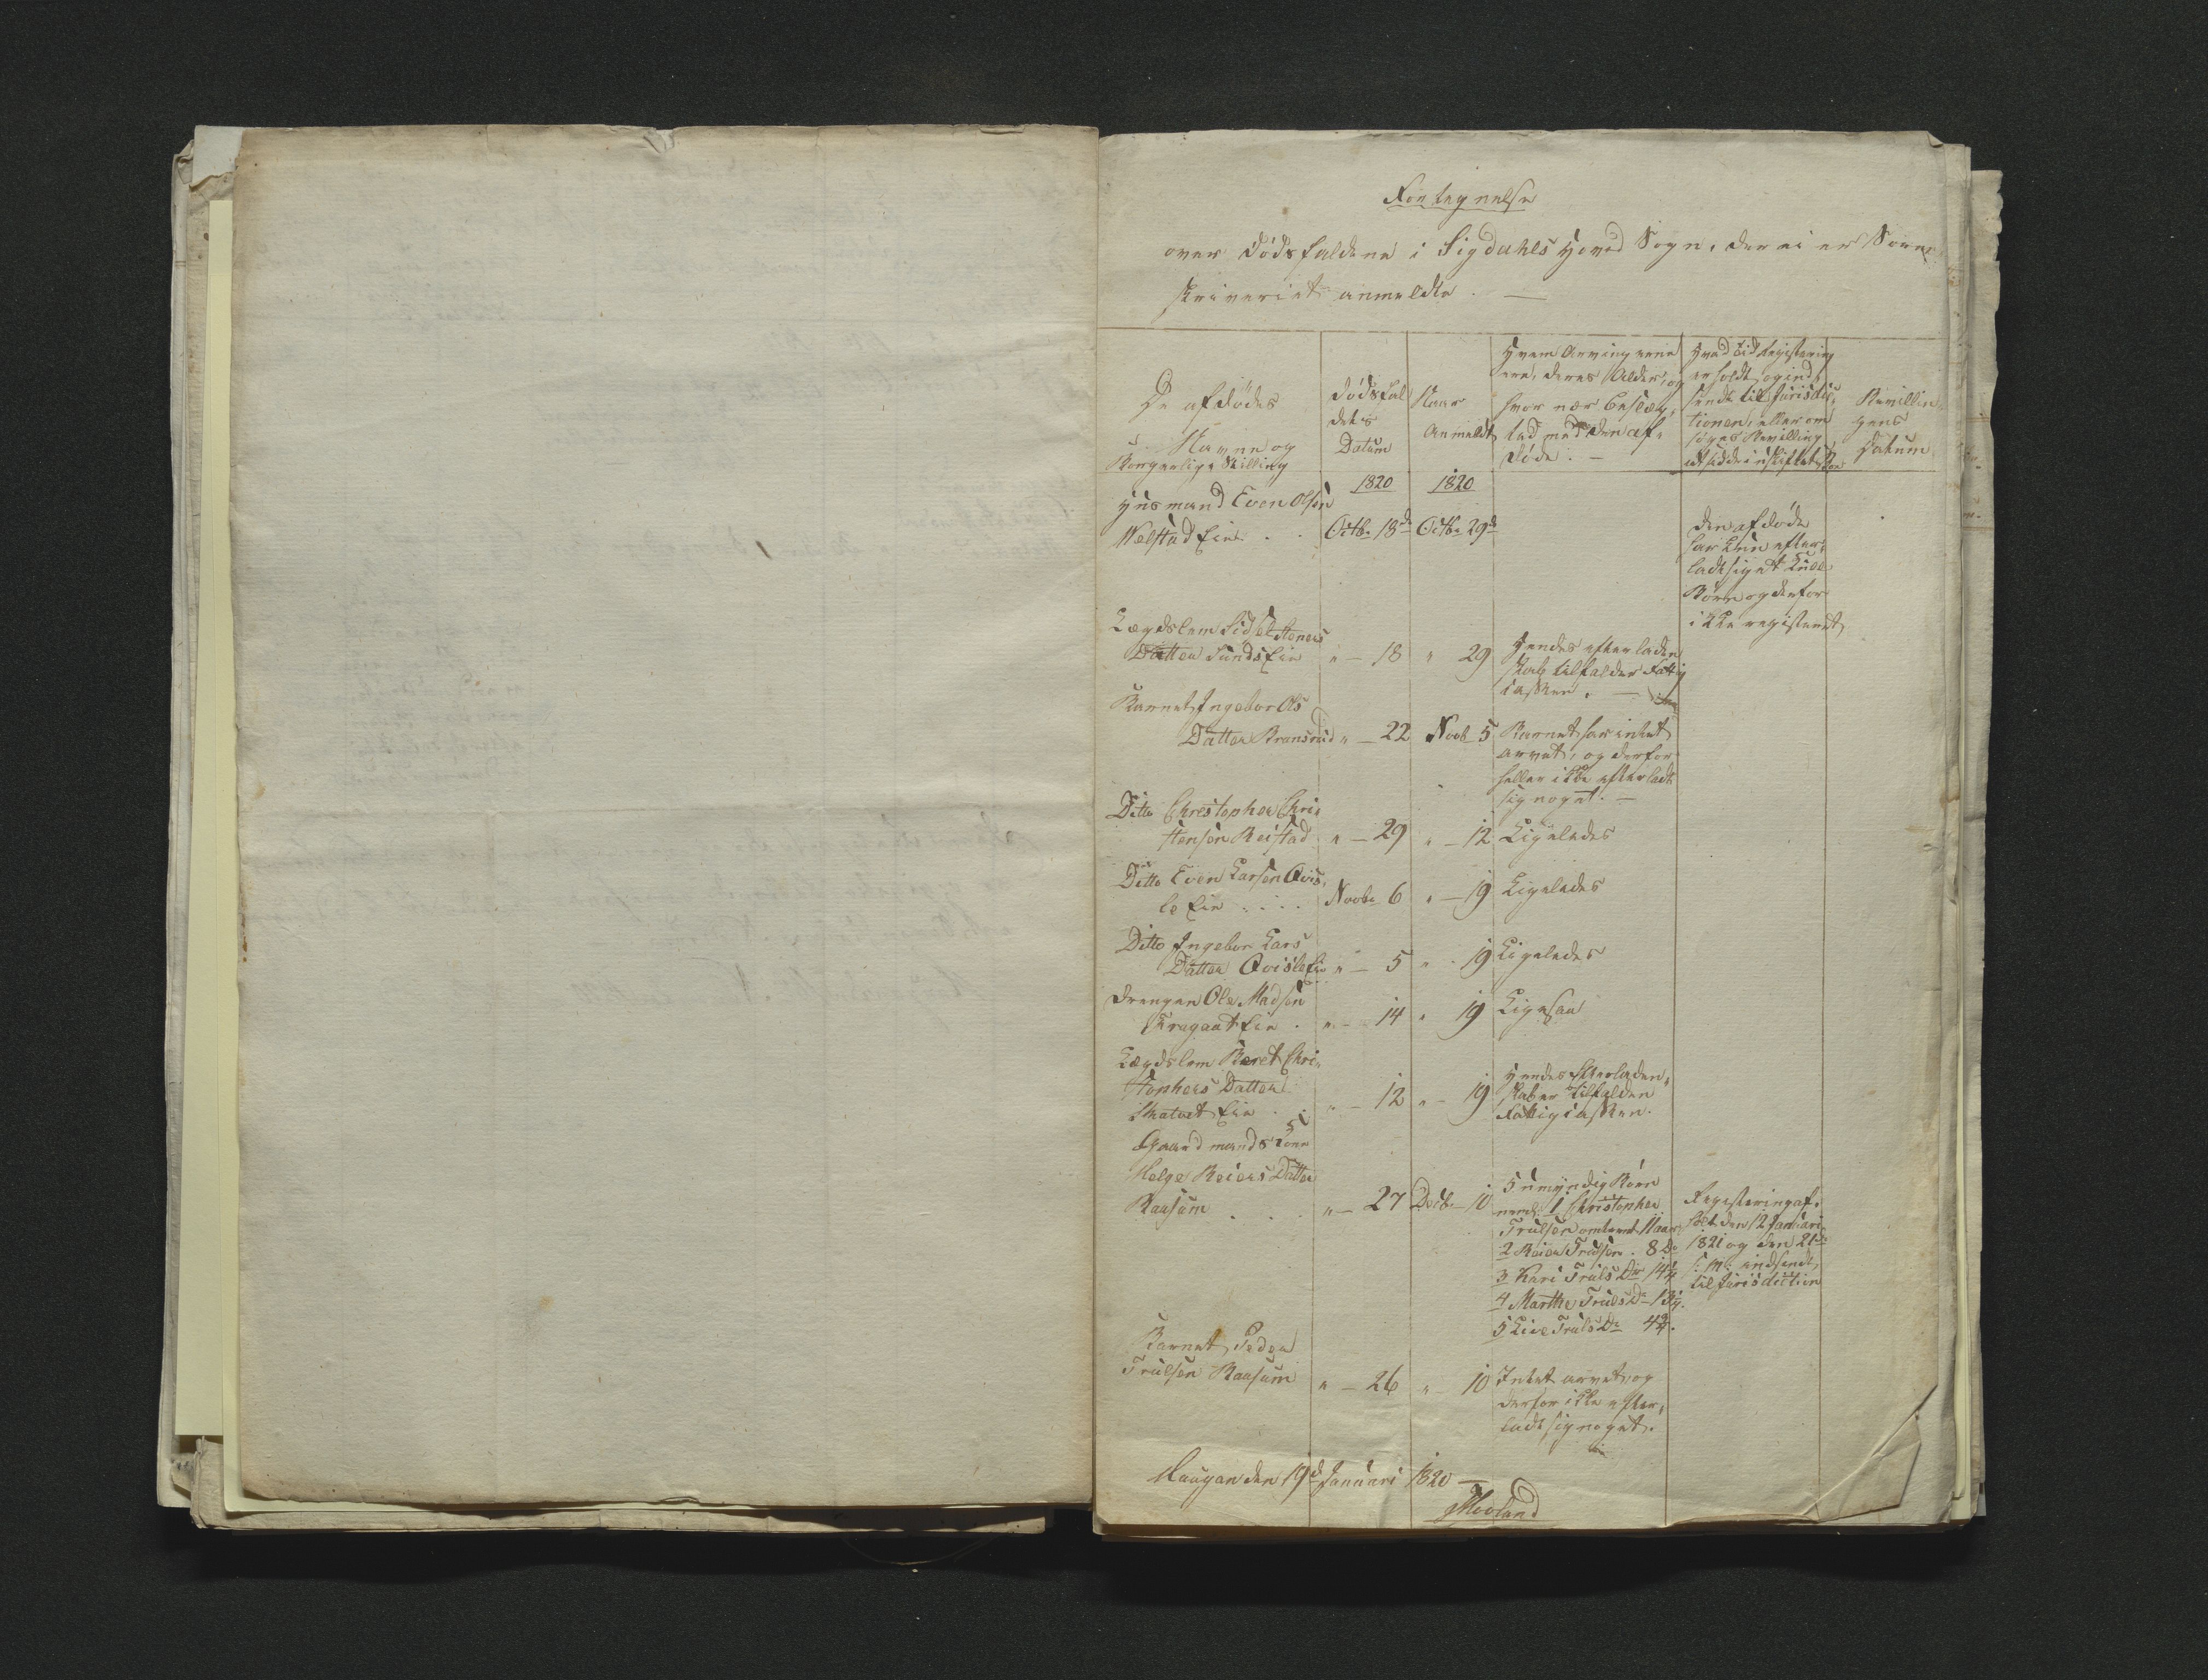 Fortegnelse
over Dödsfaldene i Sigdahls Hoved Sogn, der ei er Soren
skriveriet anmeldte. —
De afdödes
Navne og
Borgerlige Stilling
Dödsfal
dets
Datum
Naar
Anmeldt
Hvem Arvingerne
ere, deres Alder, og
hvor nær beslæg,
tad med den af,
döde. —
Hvad Tid Registering
er holdt og ind,
sendt til Jurisdic,
tionen, eller om
söges Bevilling
at sidde i uskiftet Boe
Bevillin,
gens
Datum
1820
1820
Husmand Even Olsen
Nelstad Eie . .
Octbr 18de
Octbr 29de
Den afdöde
har kun efter,
ladt sig et Kuld
Börn og derfor
ikke registeret
Lægdslem Sidsel Steners
Datter Lunds Eie
" — 18
" 29
Hendes efterladen
skab tilfalder Fattig
cassen. —
Barnet Ingebor Ols
Datter Brunsrud
" — 22
Novb 5
Barnet har intet
arvet, og derfor
heller ikke efterladt
sig noget. —
Ditto Christopher Chri,
stensen Reistad
" — 29
" — 12
Ligeledes
Ditto Even Larsen Qvis,
le Eie . . . .
Novbr 6
" — 19
Ligeledes
Ditto Ingebor Lars
Datter Qvisle Eie
" — 5
" . 19
Ligeledes
Drengen Ole Madsen
Kragaat Eie .
" — 14
" 19
Ligesaa
Lægdslem Beret Chri,
stophers Datter
Skatvet Eie . .
" — 12
" — 19
Hendes Efterladen,
skab er tilfalden
Fattigcassen.
Gaardmands Kone
Helge Reiers Datter
Raasum . . .
" — 27
Decbr 10
5 umyndig Börn
neml: 1 Christopher
Trulsen omtrent 11 aar
2 Reier Trulsen . 8 Do
3 Kari Truls Dr 14¼
4 Marthe Truls Dr 13¼.
5 Live Truls Dr 4¾.
Registering af,
holdt den 12 Januari
1821 og den 21de
s: M: indsendt
til Jurisdiction
Barnet Peder
Trulsen Raasum
" — 26
" — 10
Intet arvet, og
derfor ikke efter,
ladt sig noget.
Haugan den 19d Januari 1820 —
Moland